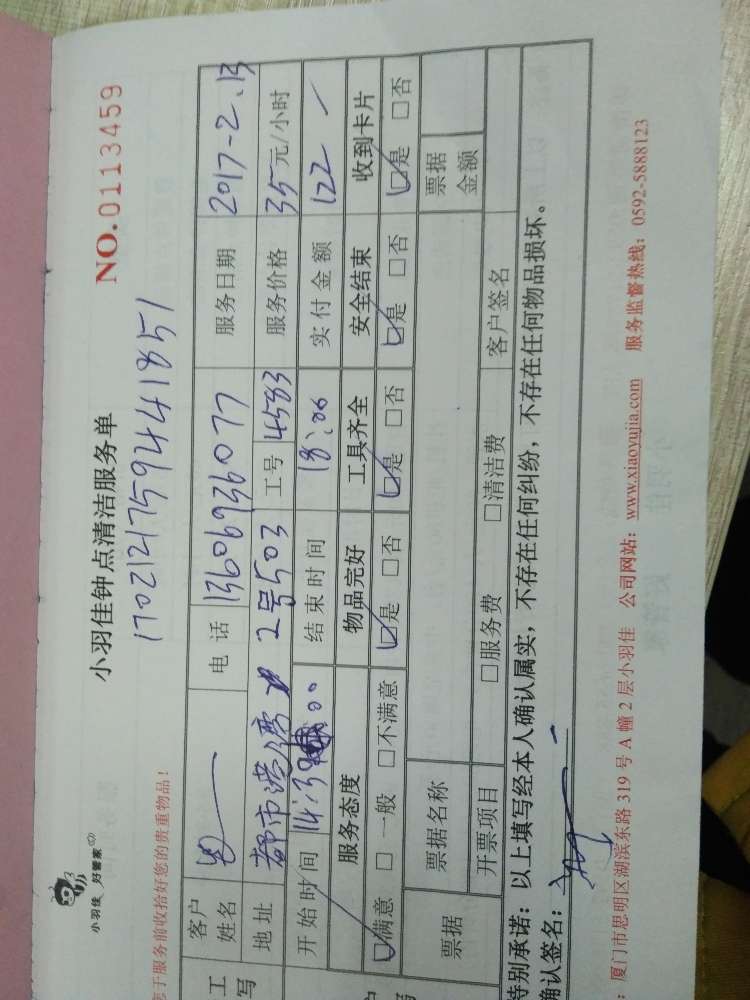 小羽佳 好管家
小羽佳钟点清洁服务单
NO.0113459
17021217594441851
您于服务前收拾好您的贵重物品！
客户姓名
电话 13606936077
服务日期 2017-2.13
地址 都市港湾 2号503
工号 4583
服务价格 35元/小时
开始时间 14:3
结束时间 18:00
实付金额 122
服务态度 物品完好 工具齐全 安全结束 收到卡片
☑满意 □一般 □不满意 ☑是 □否 ☑是 □否 ☑是 □否 ☑是 □否
票据 票据名称 票据金额
开票项目 □服务费 □清洁费 客户签名
特别承诺：以上填写经本人确认属实，不存在任何纠纷，不存在任何物品损坏。
确认签名：
厦门市思明区湖滨东路319号A幢2层小羽佳 公司网站：www.xiaoyujia.com 服务监督热线：0592-5888123
工
写